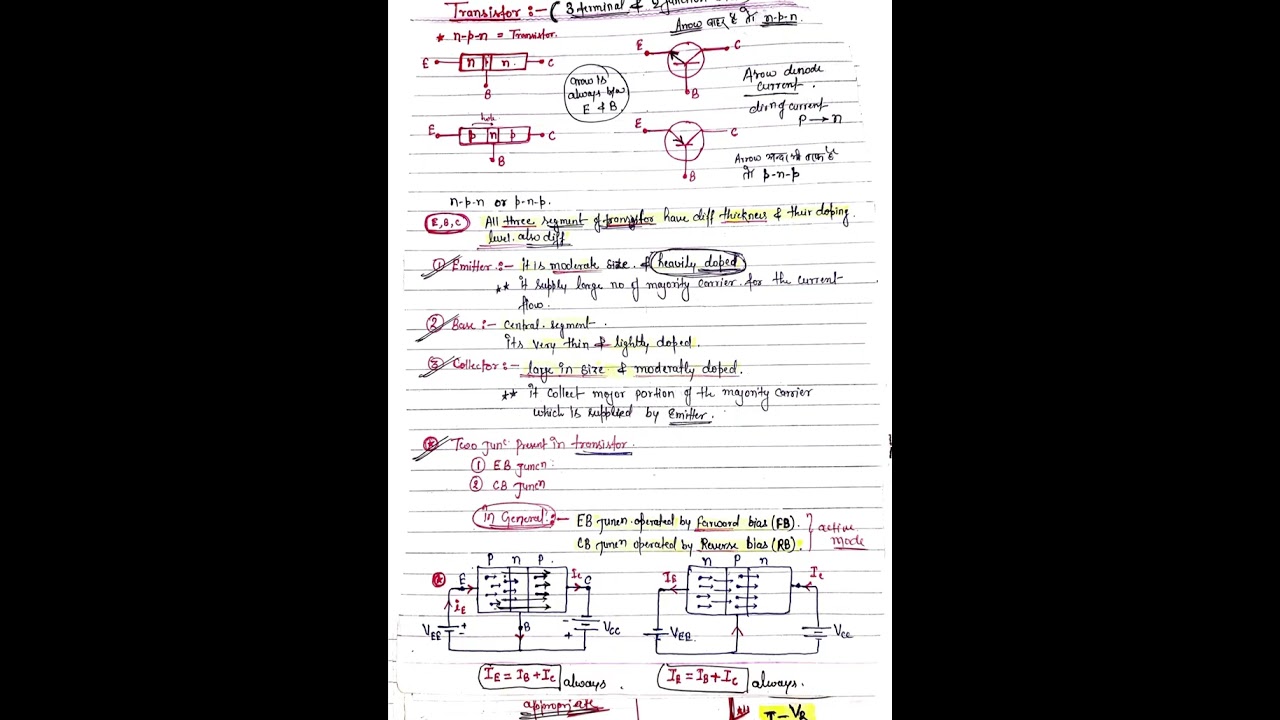 Transistor :- ( 3 terminal & 2 junction
Arrow बाहर है तो n-p-n
* n-p-n = Transistor.
E n n. C
B
E C
B
Arrow is
always b/w
E & B.
Arrow denode
current.
dirnq of current
P → n
hole
E p n p C
B
E C
B
Arrow अन्दर की तरफ है
तो p-n-p
n-p-n or p-n-p.
E, B, C All three segment of transistor have diff thickness & their doping
level also diff
① Emitter :- it is moderate size & heavily doped
** it supply large no of majority carrier for the current
flow.
② Base :- Central segment.
its very thin & lightly doped.
③ Collector :- large in size & moderatly doped.
** it collect major portion of the majority carrier
which is supplied by Emitter.
Two junc present in transistor.
① EB juncn
② CB juncn
in General :- EB juncn operated by forward bias (FB).
CB juncn operated by Reverse bias (RB).
active
mode
P n P.
E IC C
iE
VEE + - B - + VCC
n P n
IE IC
VEE. VCC
IE = IB + IC always.
IE = IB + IC always.
appropriate